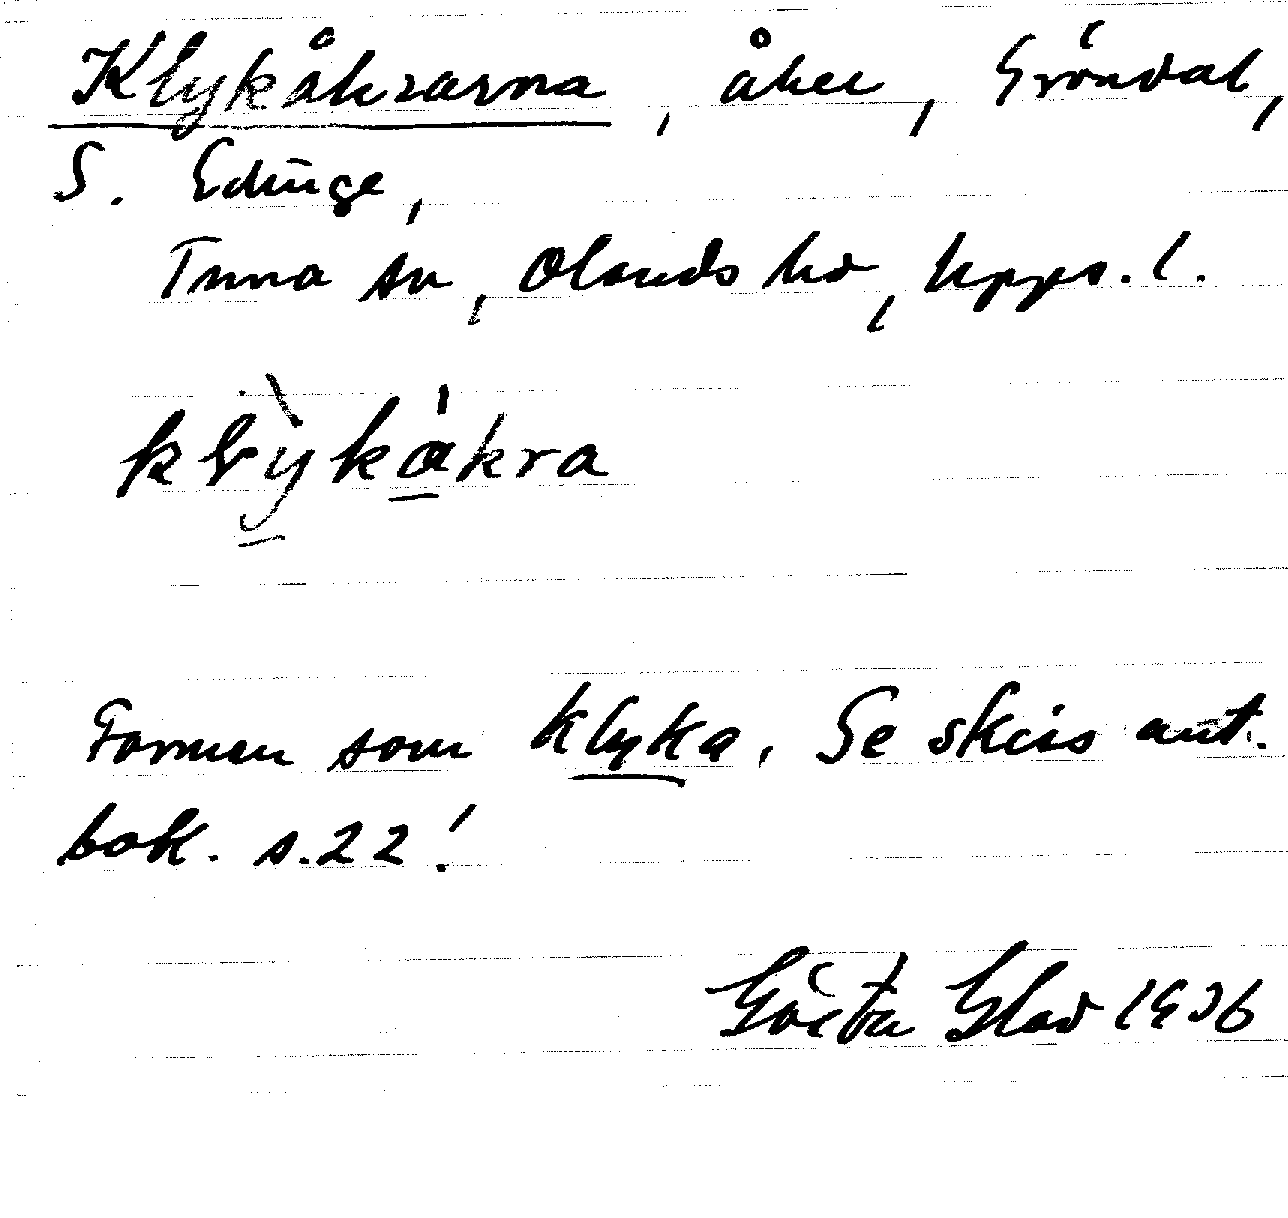 Klykåkrarna, åker, Gröndal,
S. Edinge,
Tuna sn, Olands hd, Upps. l.
klỳkåkra
Formen som klyka. Se skiss ant.
bok. s. 22!
Gösta Glad 1936